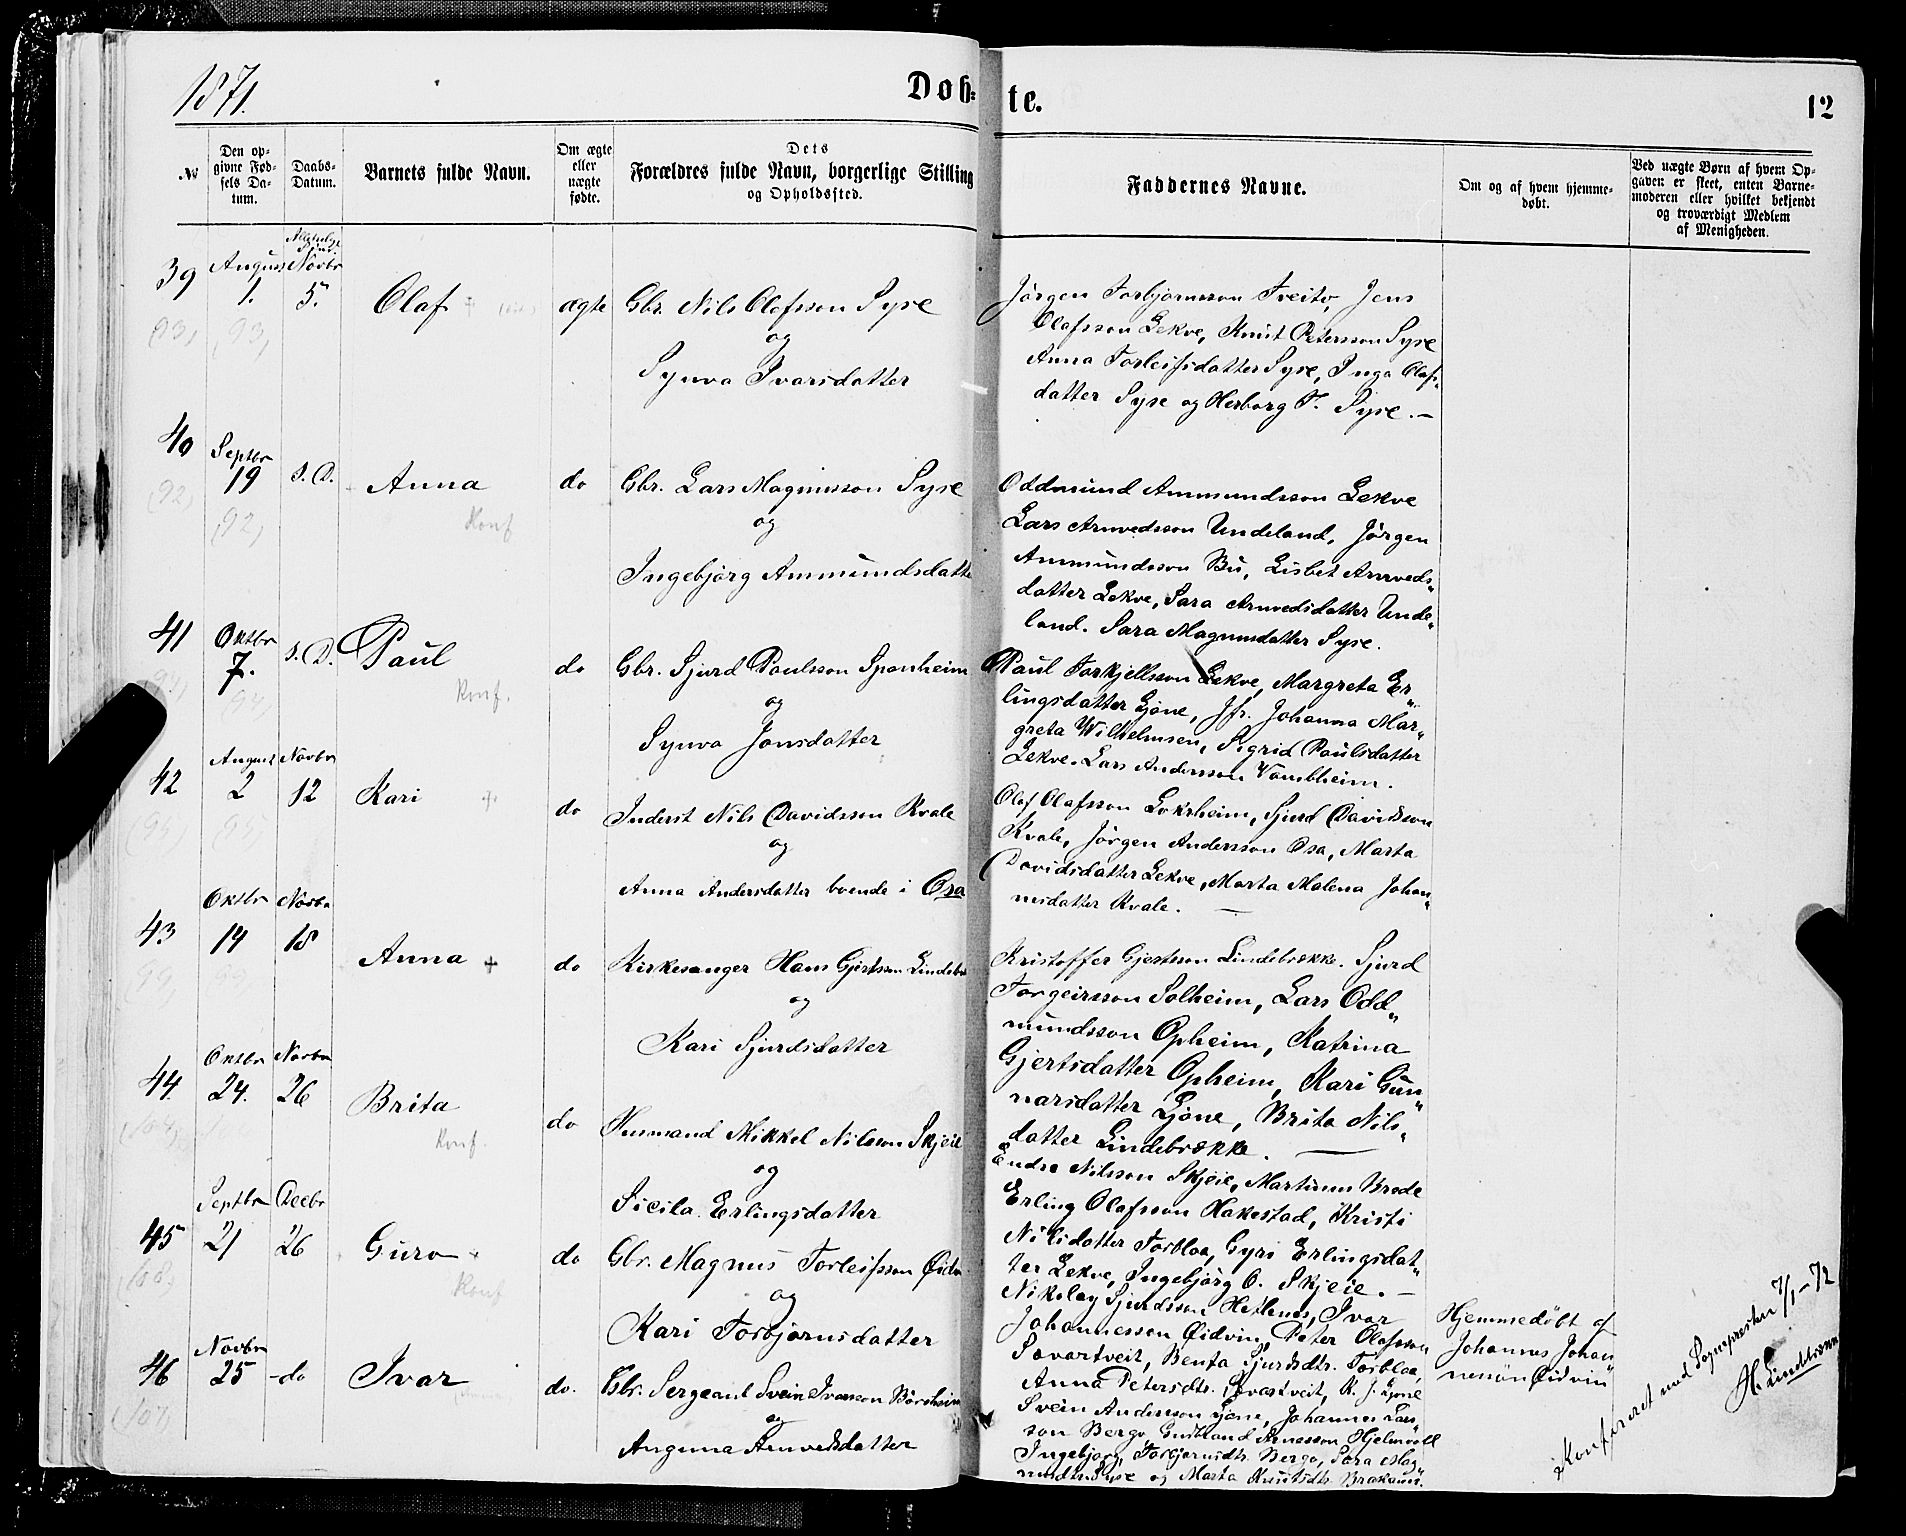 1871.
Døb-
te.
12
№
Den op-
givne Fød-
sels Da-
tum.
Daabs-
Datum.
Barnets fulde Navn.
Om ægte
eller
uægte
fødte.
Dets
Forældres fulde Navn, borgerlige Stilling
og Opholdssted.
Faddernes Navne.
Om og af hvem hjemme-
døbt.
Ved uægte Børn af hvem Op-
gaven er skeet, enten Barne-
moderen eller hvilket bekjendt
og troværdigt Medlem
af Menigheden.
39
August
1.
Novbr
5.
Olaf
ægte
Gbr. Nils Olafsson Syse
og
Synva Ivarsdatter
Jørgen Torbjørnsson Tveito, Jens
Olafsson Lekve, Knut Petersson Syse
Anna Torleifsdatter Syse, Inga Olafs-
datter Syse og Herborg T. Syse.-
(93,
(93,
40
Septbr
19
s. D.
Anna
Konf
do
Gbr. Lars Magnusson Syse
og
Ingebjørg Ammundsdatte
Oddmund Ammundsson Lekve
Lars Arnvedsson Undeland, Jørgen
Ammundsson Bu, Lisbet Arnveds-
datter Lekve, Sara Arnvedsdatter Unde-
land. Sara Magnusdatter Syse.
(92,
(92,
41
Oktbr
7.
s. D.
Paul
Konf.
do
Gbr. Sjurd Paulsson Sponheim
og
Synva Jonsdatter
Paul Torkjellsson Lekve, Margreta Er-
lingsdatter Ljone, Jfr. Johanna Mar-
greta Wilhelmsen, Sigrid Paulsdatter
Lekve. Lars Andersson Vambheim.
42
August
2
Novbr
12
Kari
do
Inderst Nils Davidsson Kvale
og
Anna Andersdatter boende i Osa
Olaf Olafsson Loksheim, Sjurd Davidsson
Kvale, Jørgen Andersson Osa, Marta
Davidsdatter Lekve, Marta Malena Johan-
nesdatter Kvale. —
43
Oktbr
14
Novbr
18
Anna +
do
Kirkesanger Hans Gjertsson Lindebr
og
Kari Sjurdsdatter
Kristoffer Gjertsson Lindebrække. Sjurd
Torgeirsson Solheim, Lars Odd-
mundsson Opheim, Katrina
Gjertsdatter Opheim, Kari Gun-
narsdatter Ljone, Brita Nils-
datter Lindebrække. —
44.
Oktbr
24.
Novbr
26
Brita
Konf.
do
Husmand Mikkel Nilsson Skjeie
og
Sicila Erlingsdatter
Endre Nilsson Skjeie, Martinus Brede
Erling Olafsson Hakestad, Kristi
Nilsdatter Torbloa, Gyri Erlingsdat-
ter Lekve, Ingebjørg O. Skjeie. —
45
Septbr
21
Decbr
26
Guro
Konf
do
Gbr. Magnus Torleifsson Øidv
og
Kari Torbjørnsdatter
Nikolay Sjurdsson Hetlenes, Ivar
Johannesson Øidvin, Peter Olafsson
Sovartveit, Benta Sjurdsdtr. Torbloa,
Anna Petersdtr. Sovartveit, K. J. Ljone
Hjemmedøbt af
Johannes Johan
nesson Øidvin
46
Novbr
25
do
Ivar
do.
Gbr. Sergeant Svein Ivarsson Børsheim
og
Angunna Arnvedsdatter
Svein Andersson Ljone, Johannes Lars-
son Bergo, Gudbrand Arnesson Hjelmvoll
Ingebjørg Torbjørnsdtr. Bergo, Sara Mag-
nusdtr. Syse og Marta Knutsdtr. Brakanes.
Konfereret med Sogneprester 7/1-72